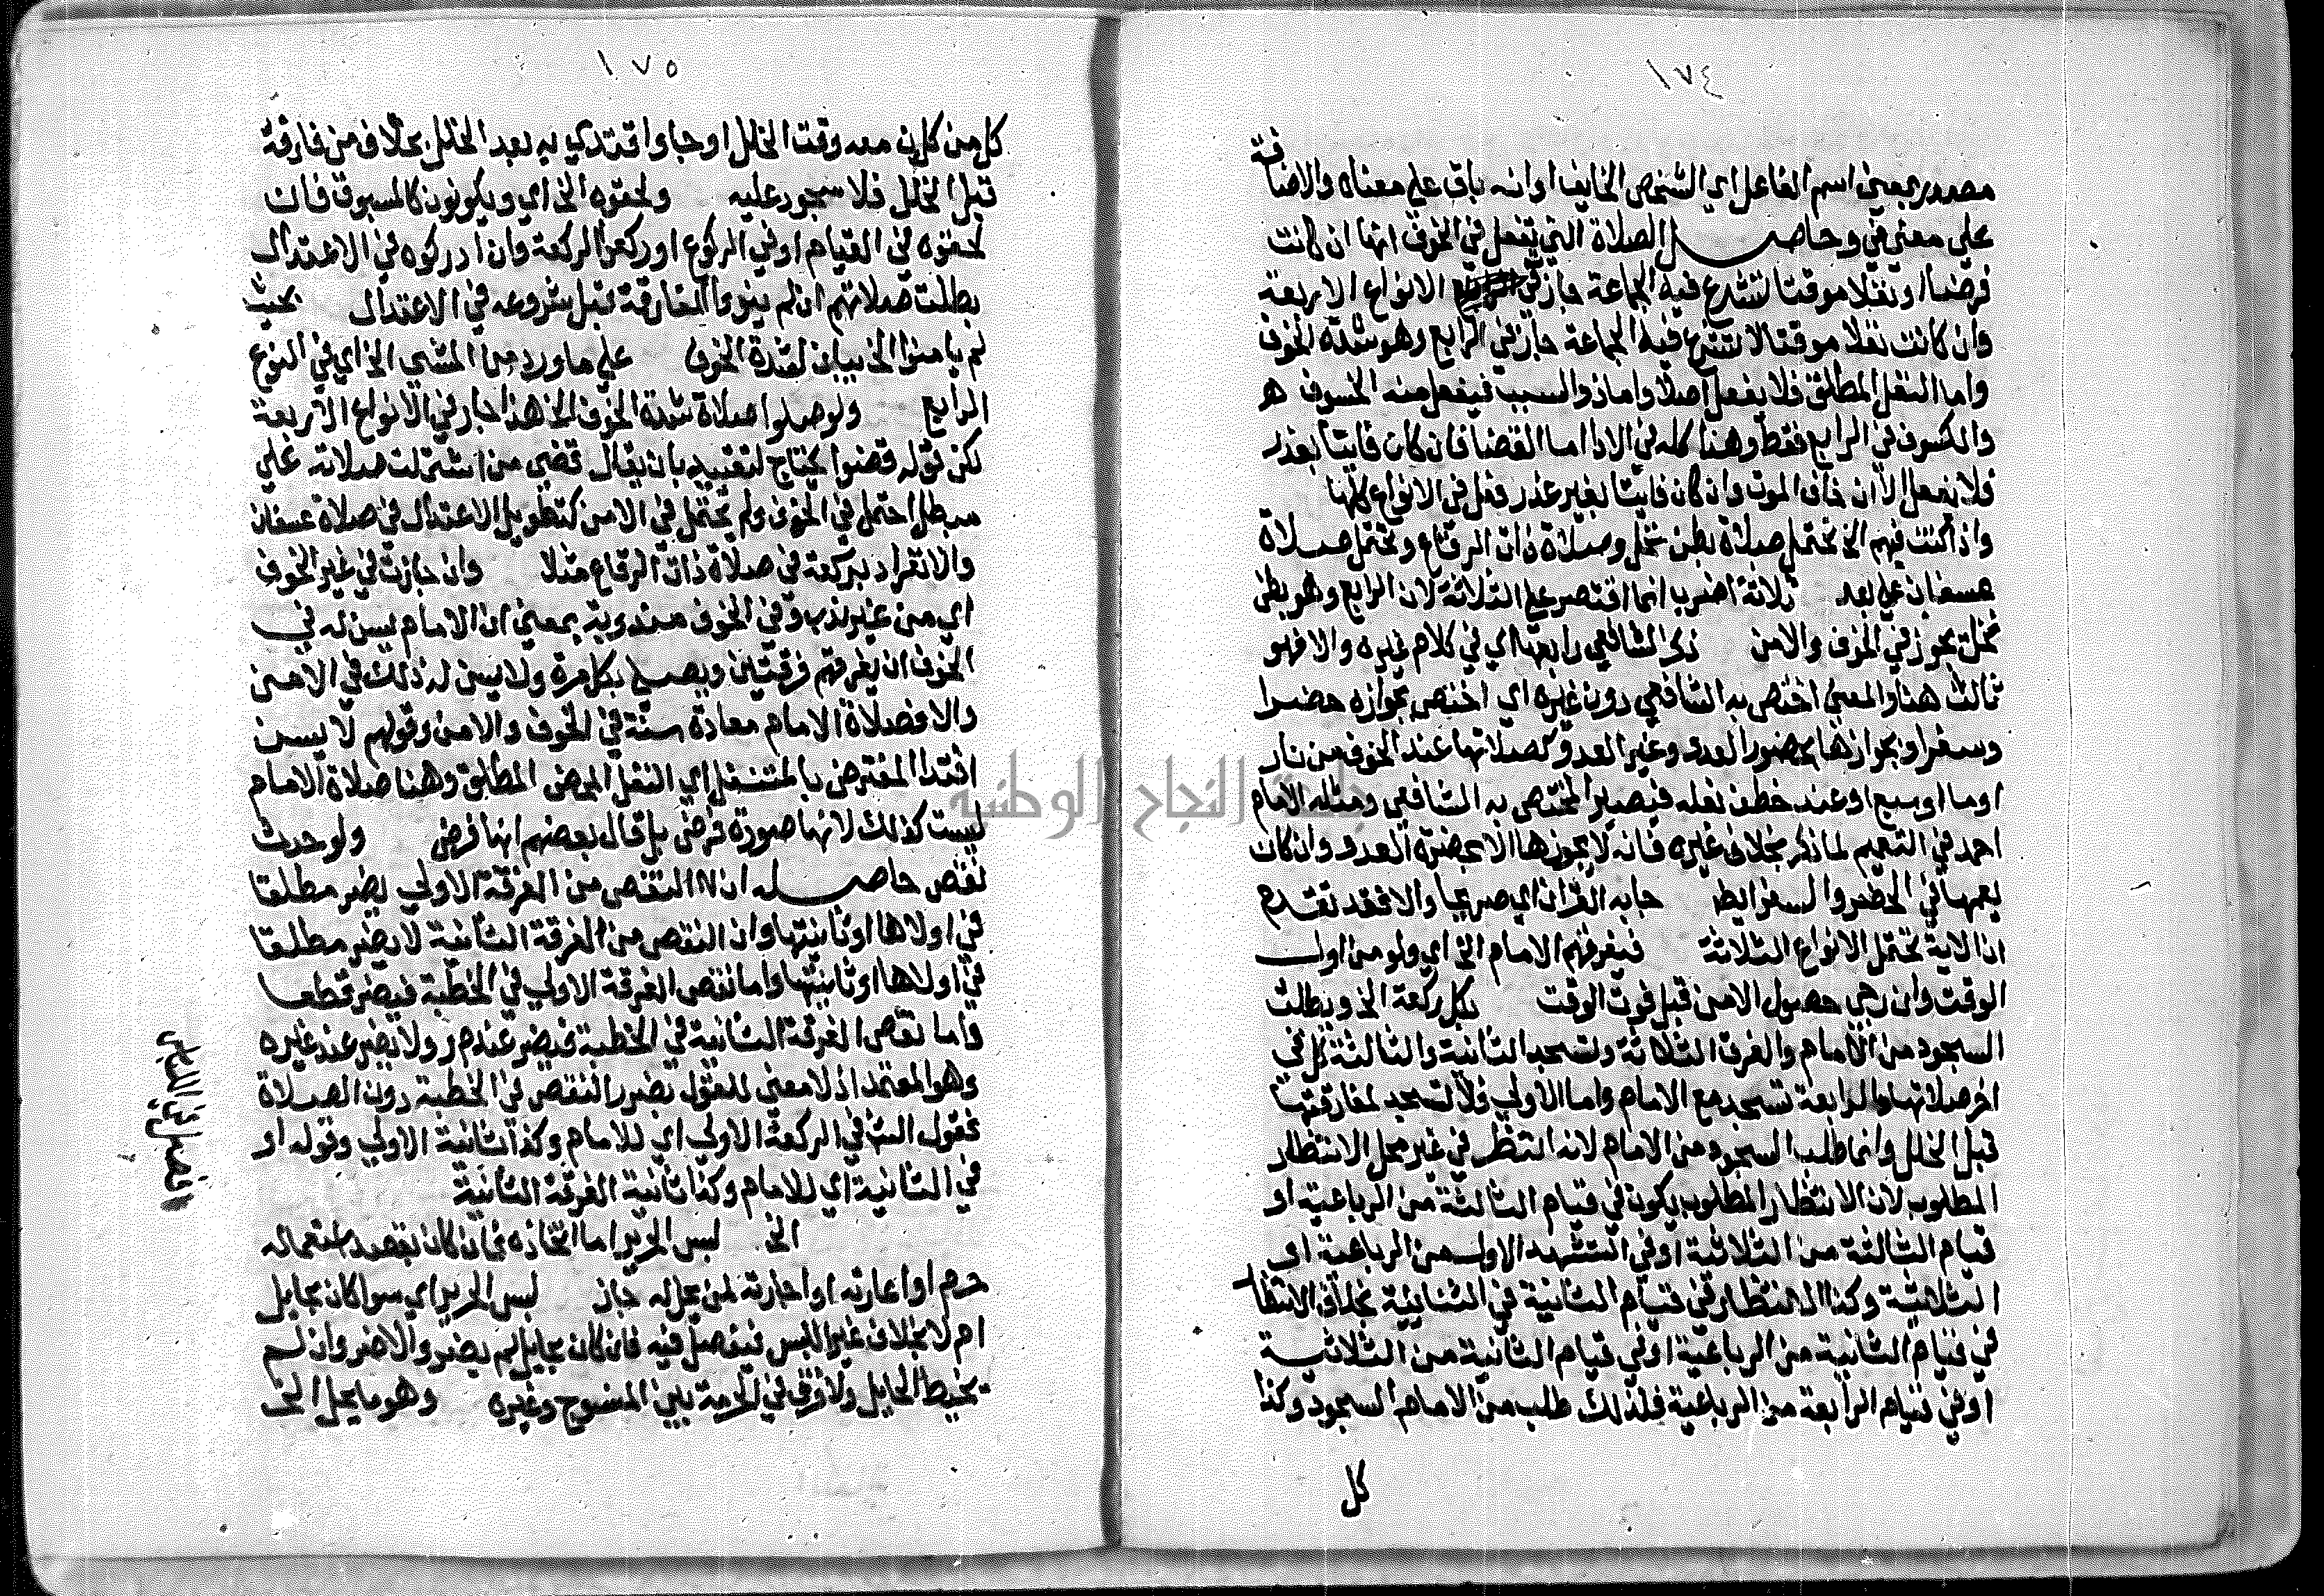 ١٧٤
مصدر بمعني اسم الفاعل اي الشخص الخايف او انه باق علي معناه والاضافة
علي معني في وحاصل الصلاة التي تفعل في الخوف انها ان كانت
فرضا او نفلا موقتا تشرع فيه الجماعة جاز في الانواع الاربعة
وان كانت نفلا موقتا لا تشرع فيه الجماعة جاز في الرابع وهو شدة الخوف
واما النفل المطلق فلا يفعل اصلا واما ذو السبب فيفعل منه الخسوف
والكسوف في الرابع فقط وهذا كله في الادا اما القضا فان كان فايتا بعذر
فلا يفعل الا ان خاف الموت وان كان فايتا بغير عذر فعل في الانواع كلها
واذا كنت فيهم الخ تحتمل صلاة بطن نخل وصلاة ذات الرقاع وتحتمل صلاة
عسفان علي بعد ثلاثة اضرب انما اقتصر علي الثلاثة لان الرابع وهو بطن
نخل يجوز في الخوف والامن ذكر الشافعي رابعها اي في كلام غيره والا فهو
ثالث هنا والمعني اختص به الشافعي دون غيره اي اختص بجوازه حضرا
وسفرا وبجوازها بحضور العدو وغير العدو كصلاتها عند الخوف من نار
او ما او سبع او عند خطف نعله فيصير المختص به الشافعي ومثله الامام
احمد في التعميم لما ذكر بخلاف غيره فانه لا يجوزها الا بحضرة العدو وان كان
يعمها في الحضر والسفر ايضا جا به القران اي صريحا والا فقد تقدم
ان الاية تحتمل الانواع الثلاثة فيفرقهم الامام الخ اي ولو من اول
الوقت وان رجي حصول الامن قبل فوت الوقت بكل ركعة الخ وبطلت
السجود من الامام والفرق الثلاثة وتسجد الثانية والثالثة كل في
اخر صلاتها والرابعة تسجد مع الامام واما الاولي فلا تسجد لمفارقتها
قبل الخلل وانما طلب السجود من الامام لانه انتظر في غير محل الانتظار
المطلوب لان الانتظار المطلوب يكون في قيام الثالثة من الرباعية او
قيام الثالثة من الثلاثية او في التشهد الاول من الرباعية او
الثلاثية وكذا الانتظار في قيام الثانية في الثنائية بخلاف الانتظار
في قيام الثانية من الرباعية او في قيام الثانية من الثلاثية
او في قيام الرابعة من الرباعية فلذلك طلب من الامام السجود وكذا
كل
١٧٥
كل من كان معه وقت الخلل او جا واقتدي به بعد الخلل بخلاف من فارقه
قبل الخلل فلا سجود عليه ولحقوه الخ اي ويكونون كالمسبوق فان
لحقوه في القيام او في الركوع ادركوا الركعة وان ادركوه في الاعتدال
بطلت صلاتهم ان لم ينووا المفارقة قبل شروعه في الاعتدال بحيث
لم يامنوا الخ بيان لشدة الخوف علي ما ورد من المشي الخ اي في النوع
الرابع ولو صلوا صلاة شدة الخوف الخ هذا جار في الانواع الاربعة
لكن قوله قضوا يحتاج لتقييد بان يقال قضي من اشتملت صلاته علي
مبطل احتمل في الخوف ولم يحتمل في الامن كتطويل الاعتدال في صلاة عسفان
والانفراد بركعة في صلاة ذات الرقاع مثلا وان جازت في غير الخوف
اي من غير ندب وفي الخوف مندوبة بمعني ان الامام يسن له في
الخوف ان يفرقهم فرقتين ويصلي بكل مرة ولا يسن له ذلك في الامن
والا فصلاة الامام معادة سنة في الخوف والامن وقولهم لا يسن
اقتدا المفترض بالمتنفل اي النفل المحض المطلق وهنا صلاة الامام
ليست كذلك لانها صورة فرض بل قال بعضهم انها فرض ولو حدث
نقص حاصله ان النقص من الفرقة الاولي يضر مطلقا
في اولاها او ثانيتها وان النقص من الفرقة الثانية لا يضر مطلقا
في اولاها او ثانيتها واما نقص الفرقة الاولي في الخطبة فيضر قطعا
واما نقص الفرقة الثانية في الخطبة فيضر عند م ر ولا يضر عند غيره
وهو المعتمد اذ لا معني للقول بضرر النقص في الخطبة دون الصلاة
فقول الش في الركعة الاولي اي للامام وكذا ثانية الاولي وقوله او
في الثانية اي للامام وكذا ثانية الفرقة الثانية
الخ لبس الحرير اما اتخاذه فان كان بقصد استعماله
حرم او اعارته او اجارته لمن يحل له جاز لبس الحرير اي سوا كان بحايل
ام لا بخلاف غير اللبس فيفصل فيه فان كان بحايل لم يضر والا ضر وان لم
يخيط الحايل ولا فرق في الحرمة بين المنسوج وغيره وهو ما يحل الخ
فصل في اللباس
جامعة النجاح الوطنية